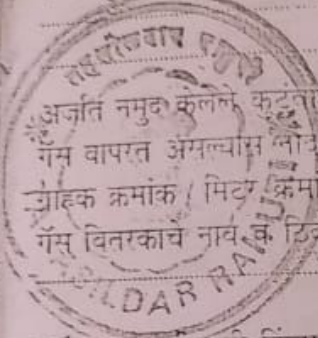 अर्जात नमुद केलेले कुटुंबा
गॅस वापरत असल्यास नोंद
ग्राहक क्रमांक / मिटर क्रमां
गॅस वितरकाचे नाव व ठि